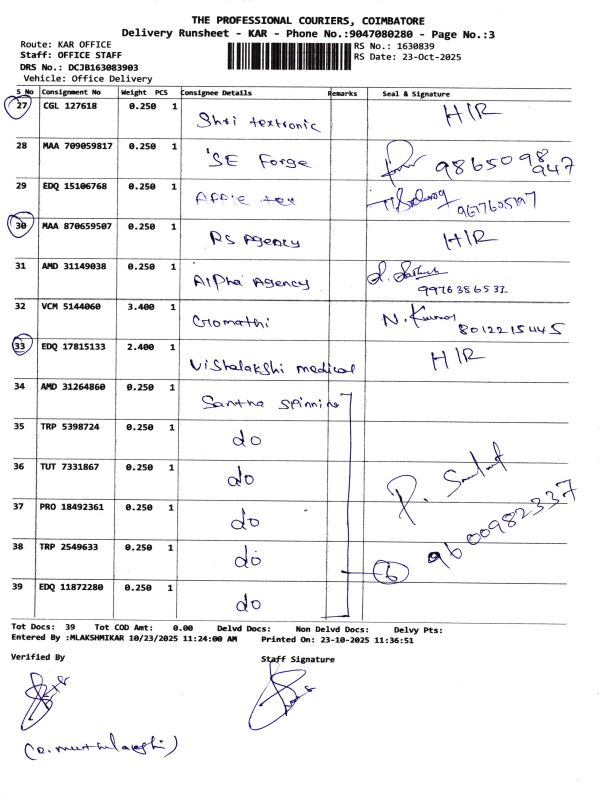 THE PROFESSIONAL COURIERS, COIMBATORE
Delivery Runsheet - KAR - Phone No.:9047080280 - Page No.:3
Route: KAR OFFICE
Staff: OFFICE STAFF
DRS No.: DCJB163083903
Vehicle: Office Delivery
RS No.: 1630839
RS Date: 23-Oct-2025
S_No Consignment No Weight PCS Consignee Details Remarks Seal & Signature
27 CGL 127618 0.250 1 Shri textronic H/R
28 MAA 709059817 0.250 1 SE Forge 9865098947
29 EDQ 15106768 0.250 1 Affie tex 9677605197
30 MAA 870659507 0.250 1 RS Agency H/R
31 AMD 31149038 0.250 1 Alpha Agency
9976386533
32 VCM 5144060 3.400 1 Gomathi N. Kumar
8012215445
33 EDQ 17815133 2.400 1 Vishalakshi medical H/R
34 AMD 31264860 0.250 1 Santha Spinning
35 TRP 5398724 0.250 1 do
36 TUT 7331867 0.250 1 do
37 PRO 18492361 0.250 1 do
9600982337
38 TRP 2549633 0.250 1 do
6
39 EDQ 11872280 0.250 1 do
Tot Docs: 39 Tot COD Amt: 0.00 Delvd Docs: Non Delvd Docs: Delvy Pts:
Entered By :MLAKSHMIKAR 10/23/2025 11:24:00 AM Printed On: 23-10-2025 11:36:51
Verified By Staff Signature